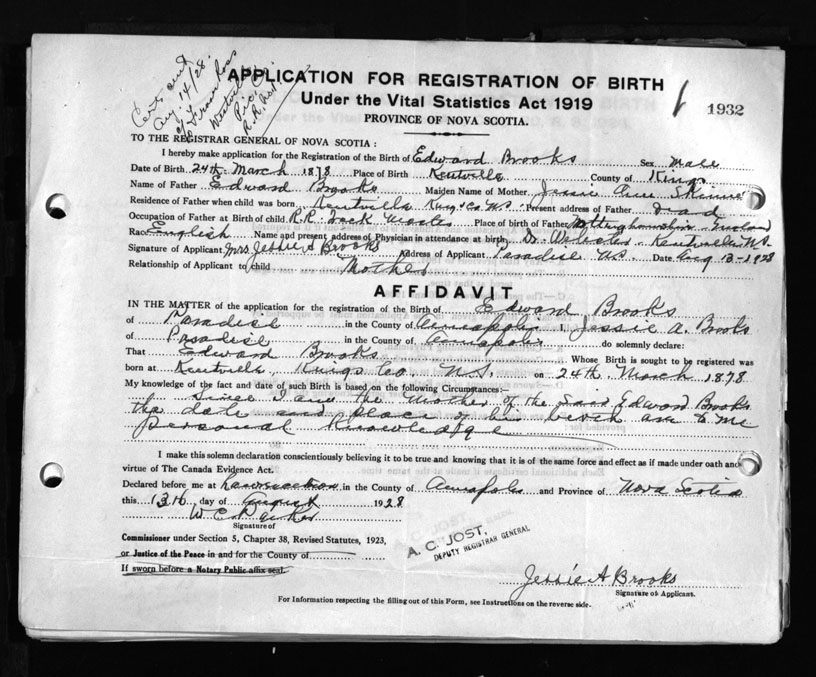 Cert. sent
Aug. 14/28.
Fran Ross
Westville
Pic. Co.
R.R. No 1
1932
APPLICATION FOR REGISTRATION OF BIRTH
Under the Vital Statistics Act 1919
PROVINCE OF NOVA SCOTIA.
TO THE REGISTRAR GENERAL OF NOVA SCOTIA :
I hereby make application for the Registration of the Birth of Edward Brooks Sex male
Date of Birth 24th March 1878 Place of Birth Kentville County of Kings
Name of Father Edward Brooks Maiden Name of Mother Jessie Ann Skinner
Residence of Father when child was born Kentville Kings Co N.S. Present address of Father Dead
Occupation of Father at Birth of child R.R. Track Master Place of birth of Father Nottinghamshire England
Race English Name and present address of Physician in attendance at birth Dr. Webster Kentville N.S.
Signature of Applicant Mrs Jessie A Brooks Address of Applicant Paradise N.S. Date Aug 13-1928
Relationship of Applicant to child Mother
AFFIDAVIT
IN THE MATTER of the application for the registration of the Birth of Edward Brooks
of Paradise in the County of Annapolis I, Jessie A. Brooks
of Paradise in the County of Annapolis do solemnly declare:
That Edward Brooks Whose Birth is sought to be registered was
born at Kentville, Kings Co. N.S. on 24th March 1878
My knowledge of the fact and date of such Birth is based on the following Circumstances:—
Since I am the Mother of the said Edward Brooks
the date and place of his birth are to me
personal knowledge
I make this solemn declaration conscientiously believing it to be true and knowing that it is of the same force and effect as if made under oath and
virtue of The Canada Evidence Act.
Declared before me at Lawrencetown in the County of Annapolis and Province of Nova Scotia
this 13th day of August 1928
W C Parker
Signature of
Commissioner under Section 5, Chapter 38, Revised Statutes, 1923,
or Justice of the Peace in and for the County of
If sworn before a Notary Public affix seal.
A. C. JOST,
DEPUTY REGISTRAR GENERAL
Jessie A Brooks
Signature of Applicant.
For Information respecting the filling out of this Form, see Instructions on the reverse side.